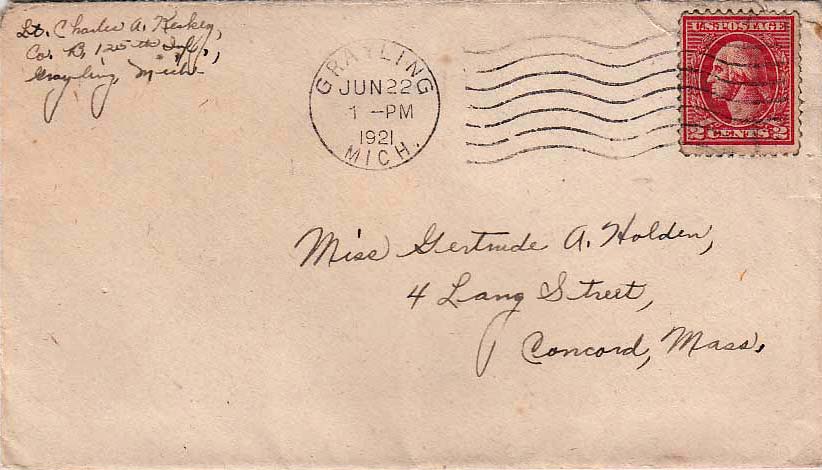 Lt. Charles A.
Co. B, 125th Inf.,
Grayling, Mich.
GRAYLING
JUN 22
1 -PM
1921
MICH.
U.S. POSTAGE
2 CENTS 2
Miss Gertrude A. Holden,
4 Lang Street,
Concord, Mass.